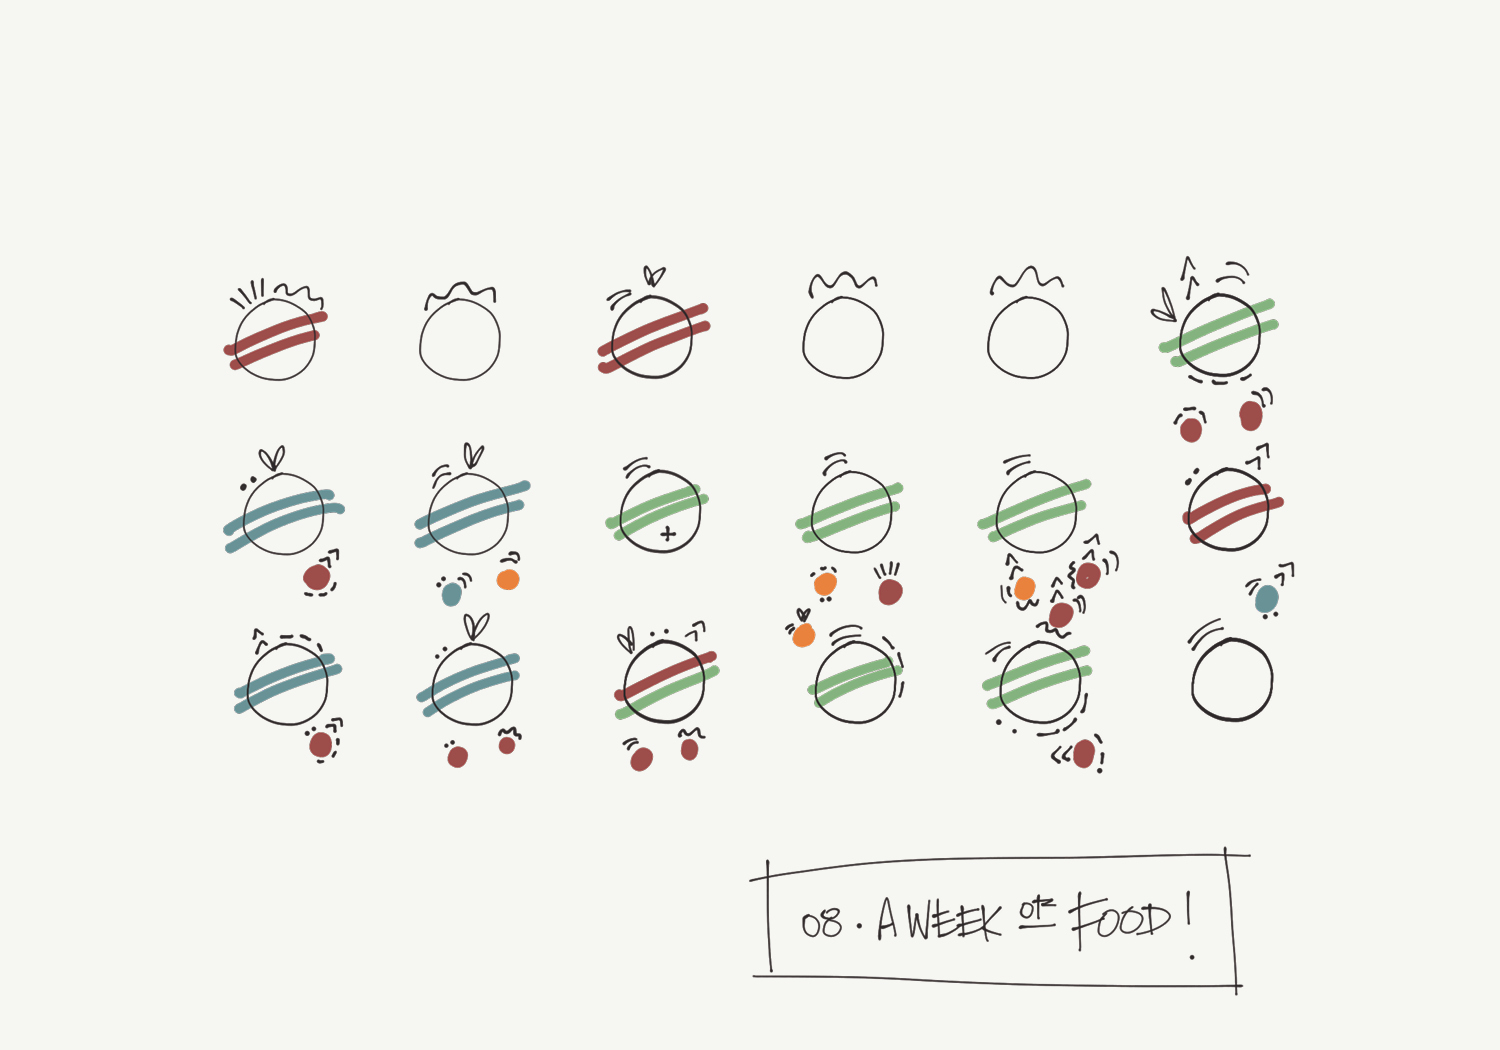 08. A WEEK OF FOOD!